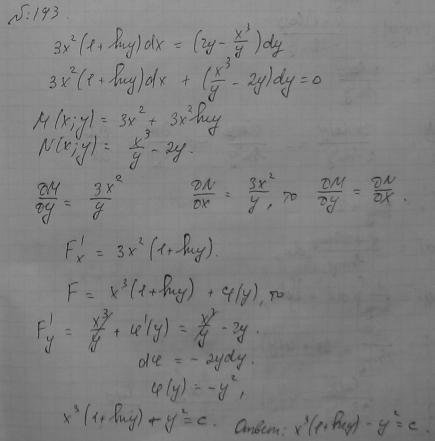 №:193.
3x²(1+lny)dx = (2y - x³/y)dy
3x²(1+lny)dx + (x³/y - 2y)dy = 0
M(x;y) = 3x² + 3x²lny
N(x;y) = x³/y - 2y.
∂M/∂y = 3x²/y ∂N/∂x = 3x²/y, то ∂M/∂y = ∂N/∂x.
F'x = 3x²(1+lny).
F = x³(1+lny) + φ(y), то
F'y = x³/y + φ'(y) = x³/y - 2y.
dφ = -2ydy.
φ(y) = -y²,
x³(1+lny) + y² = c. Ответ: x³(1+lny) - y² = c.